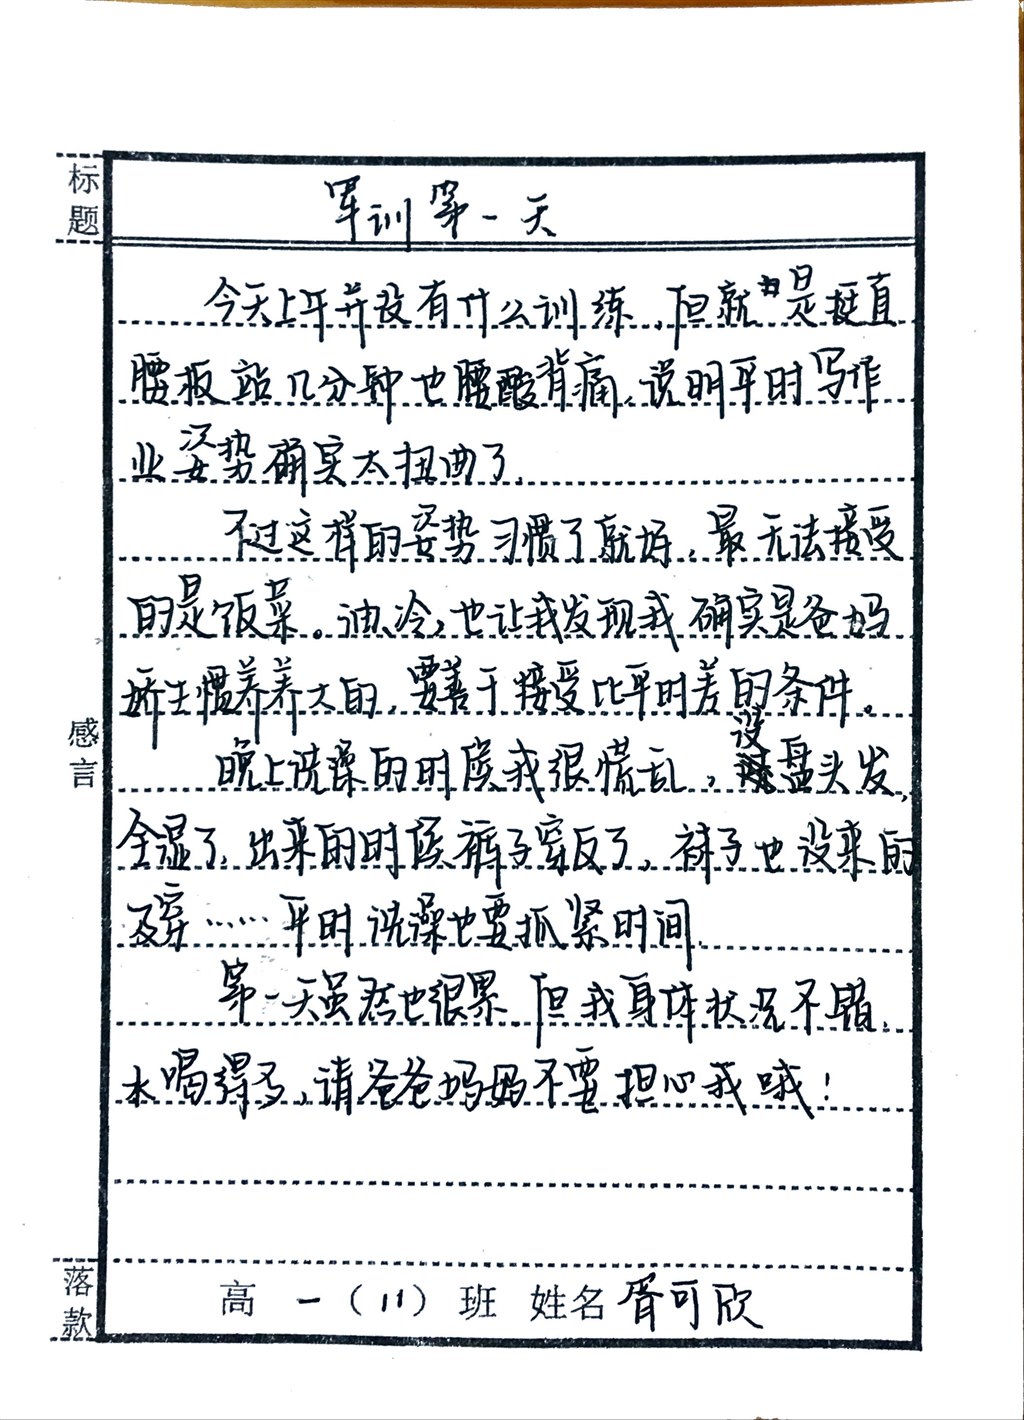 标题
军训第一天
今天上午并没有什么训练，但就是挺直
腰板站几分钟也腰酸背痛，说明平时写作
业姿势确实太扭曲了。
不过这样的姿势习惯了就好，最无法接受
的是饭菜。油、冷，也让我发现我确实是爸妈
娇生惯养养大的，要善于接受比平时差的条件。
晚上洗澡的时候我很慌乱，没盘头发，
全湿了，出来的时候裤子穿反了，袜子也没来的
及穿……平时洗澡也要抓紧时间。
第一天虽然也很累，但我身体状况不错，
水喝得多，请爸爸妈妈不要担心我哦！
感言
落款
高一（11）班 姓名 胥可欣